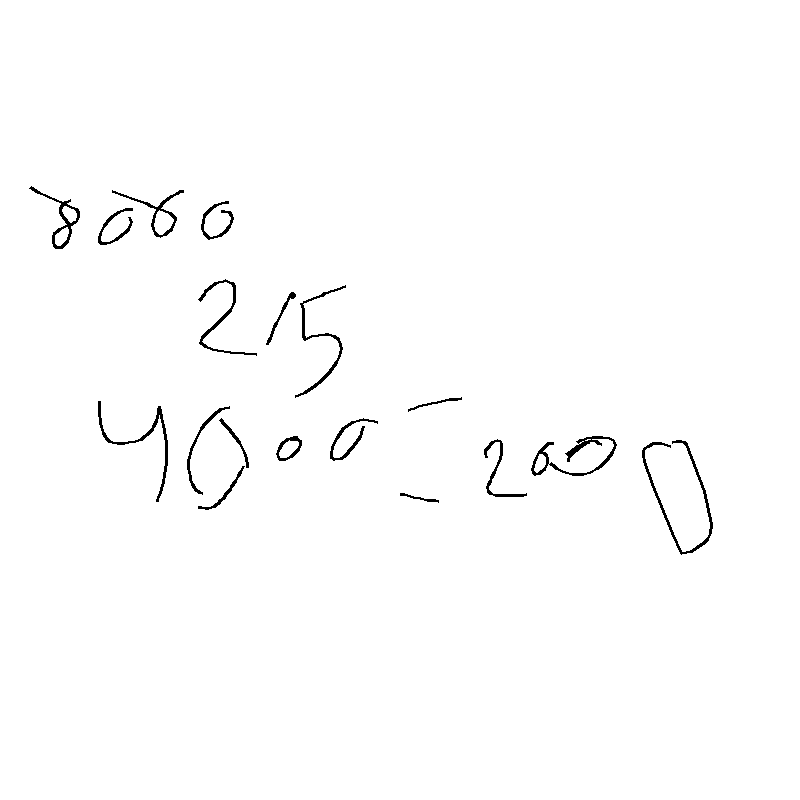 8000
215
4000=2000